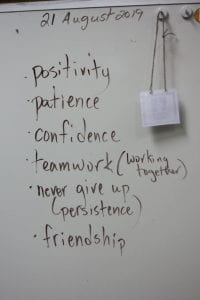 21 August 2019
· positivity
· patience
· confidence
· teamwork (working together)
· never give up
(persistence)
· friendship